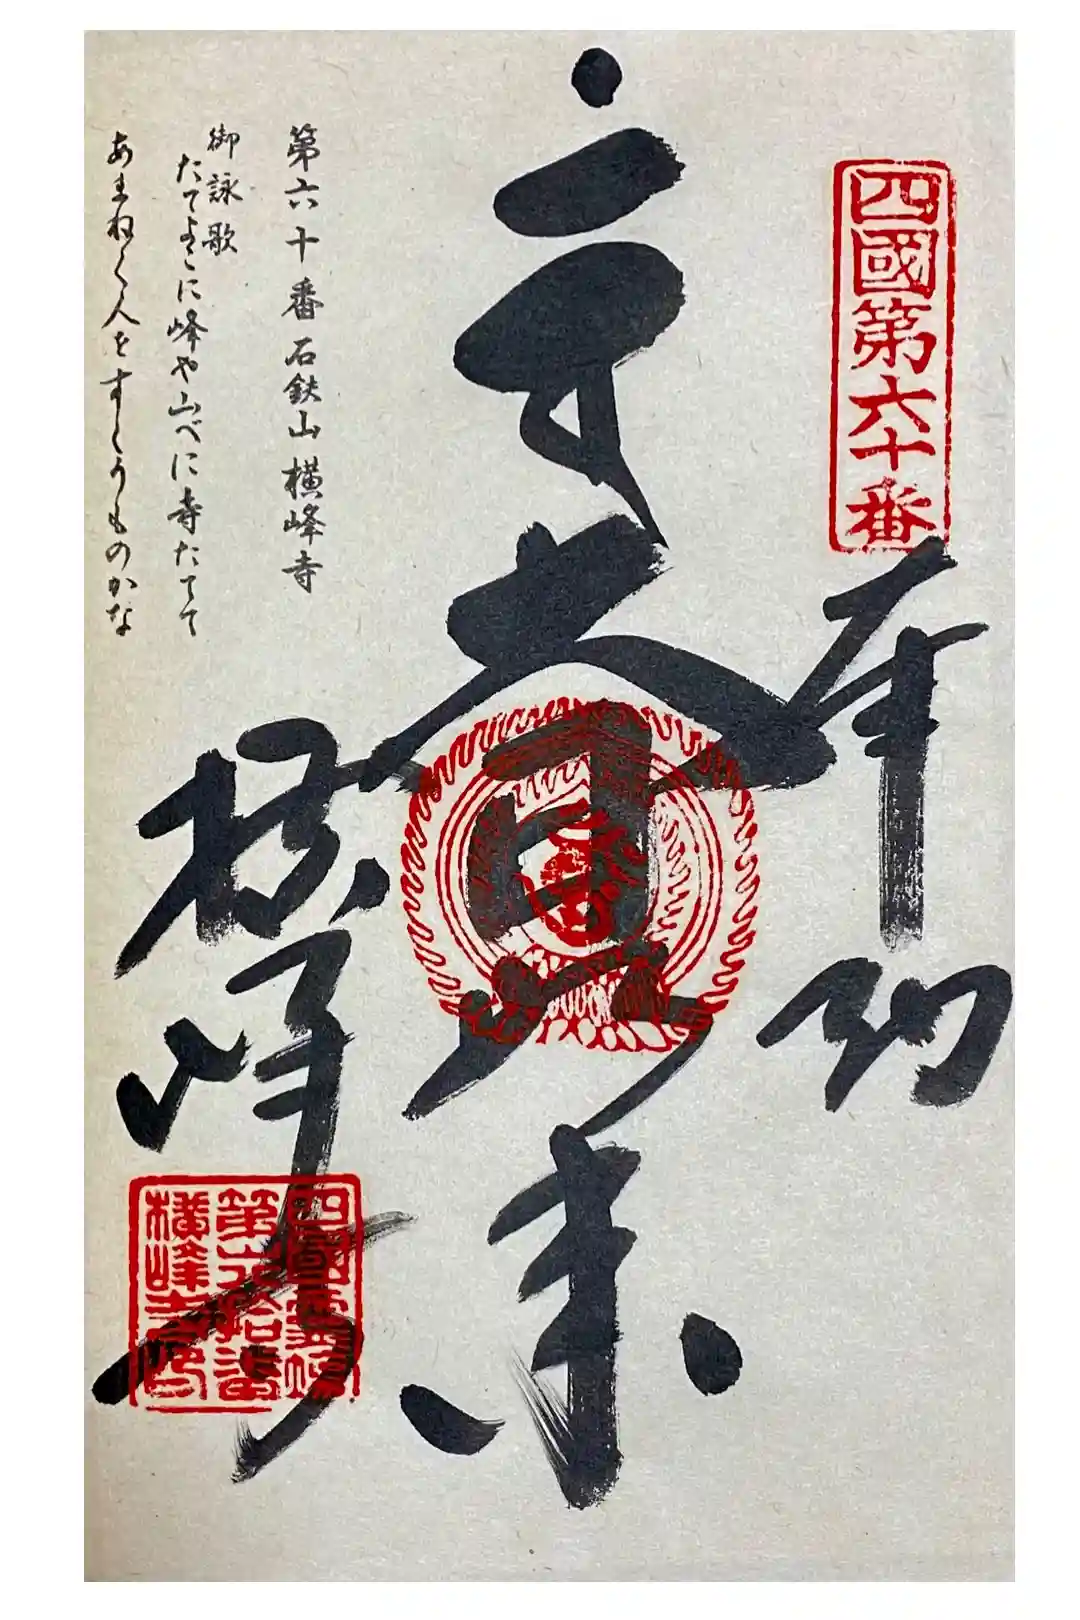 四國第六十番
奉納
大日如来
第六十番石鈇山横峰寺
御詠歌
たてよこに峰や山べに寺たてて
あまねく人をすくうものかな
横峰寺
第六拾番
横峰寺印